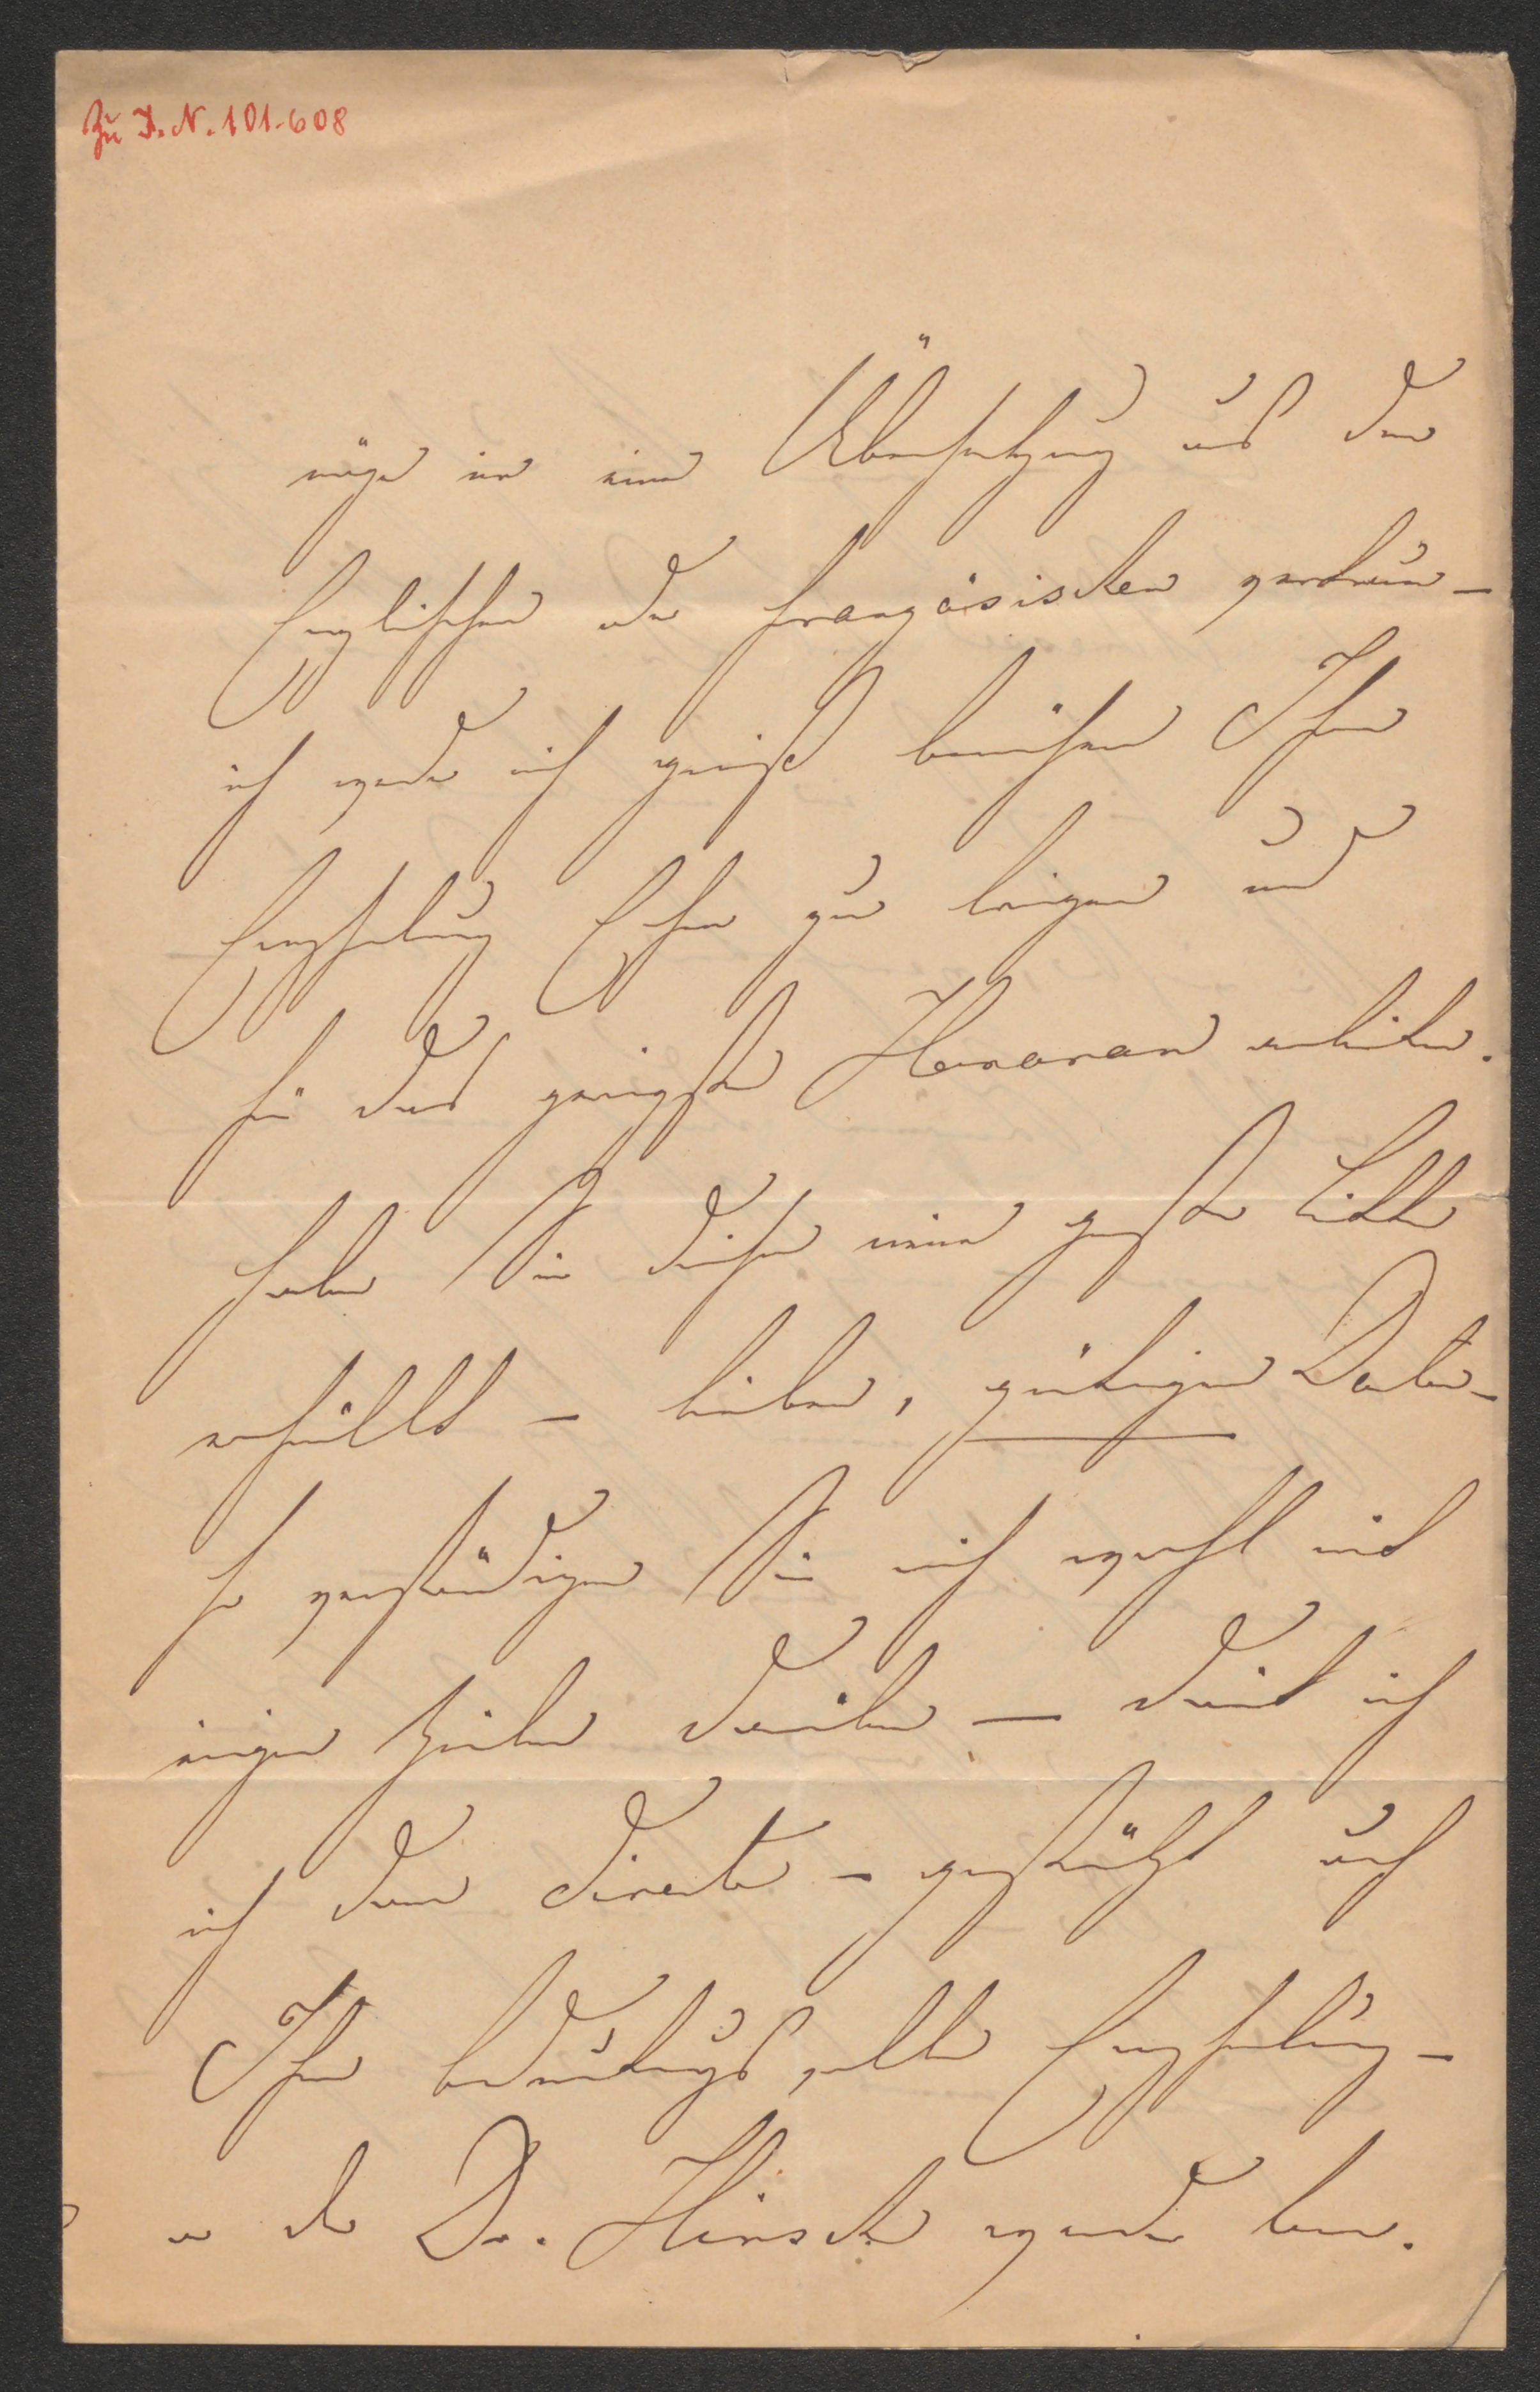 Zu I.N. 101.608
möge mir eine Übersetzung aus dem
Englischen oder französischen vertrau-
ich werde mich gewiß bemühen Ihrer
Empfehlung Ehre zu bringen und
für das geringste Honorar arbeiten.
Haben Sie diese meine große Bitte
erfüllt – lieber, gütiger Doctor –
so verständigen Sie mich wohl mit
einigen Zeilen davon — damit ich
mich dann direkte – gestützt auf
Ihre bedeutungsvolle Empfehlung –
an Dr. Hirsch wenden kann.